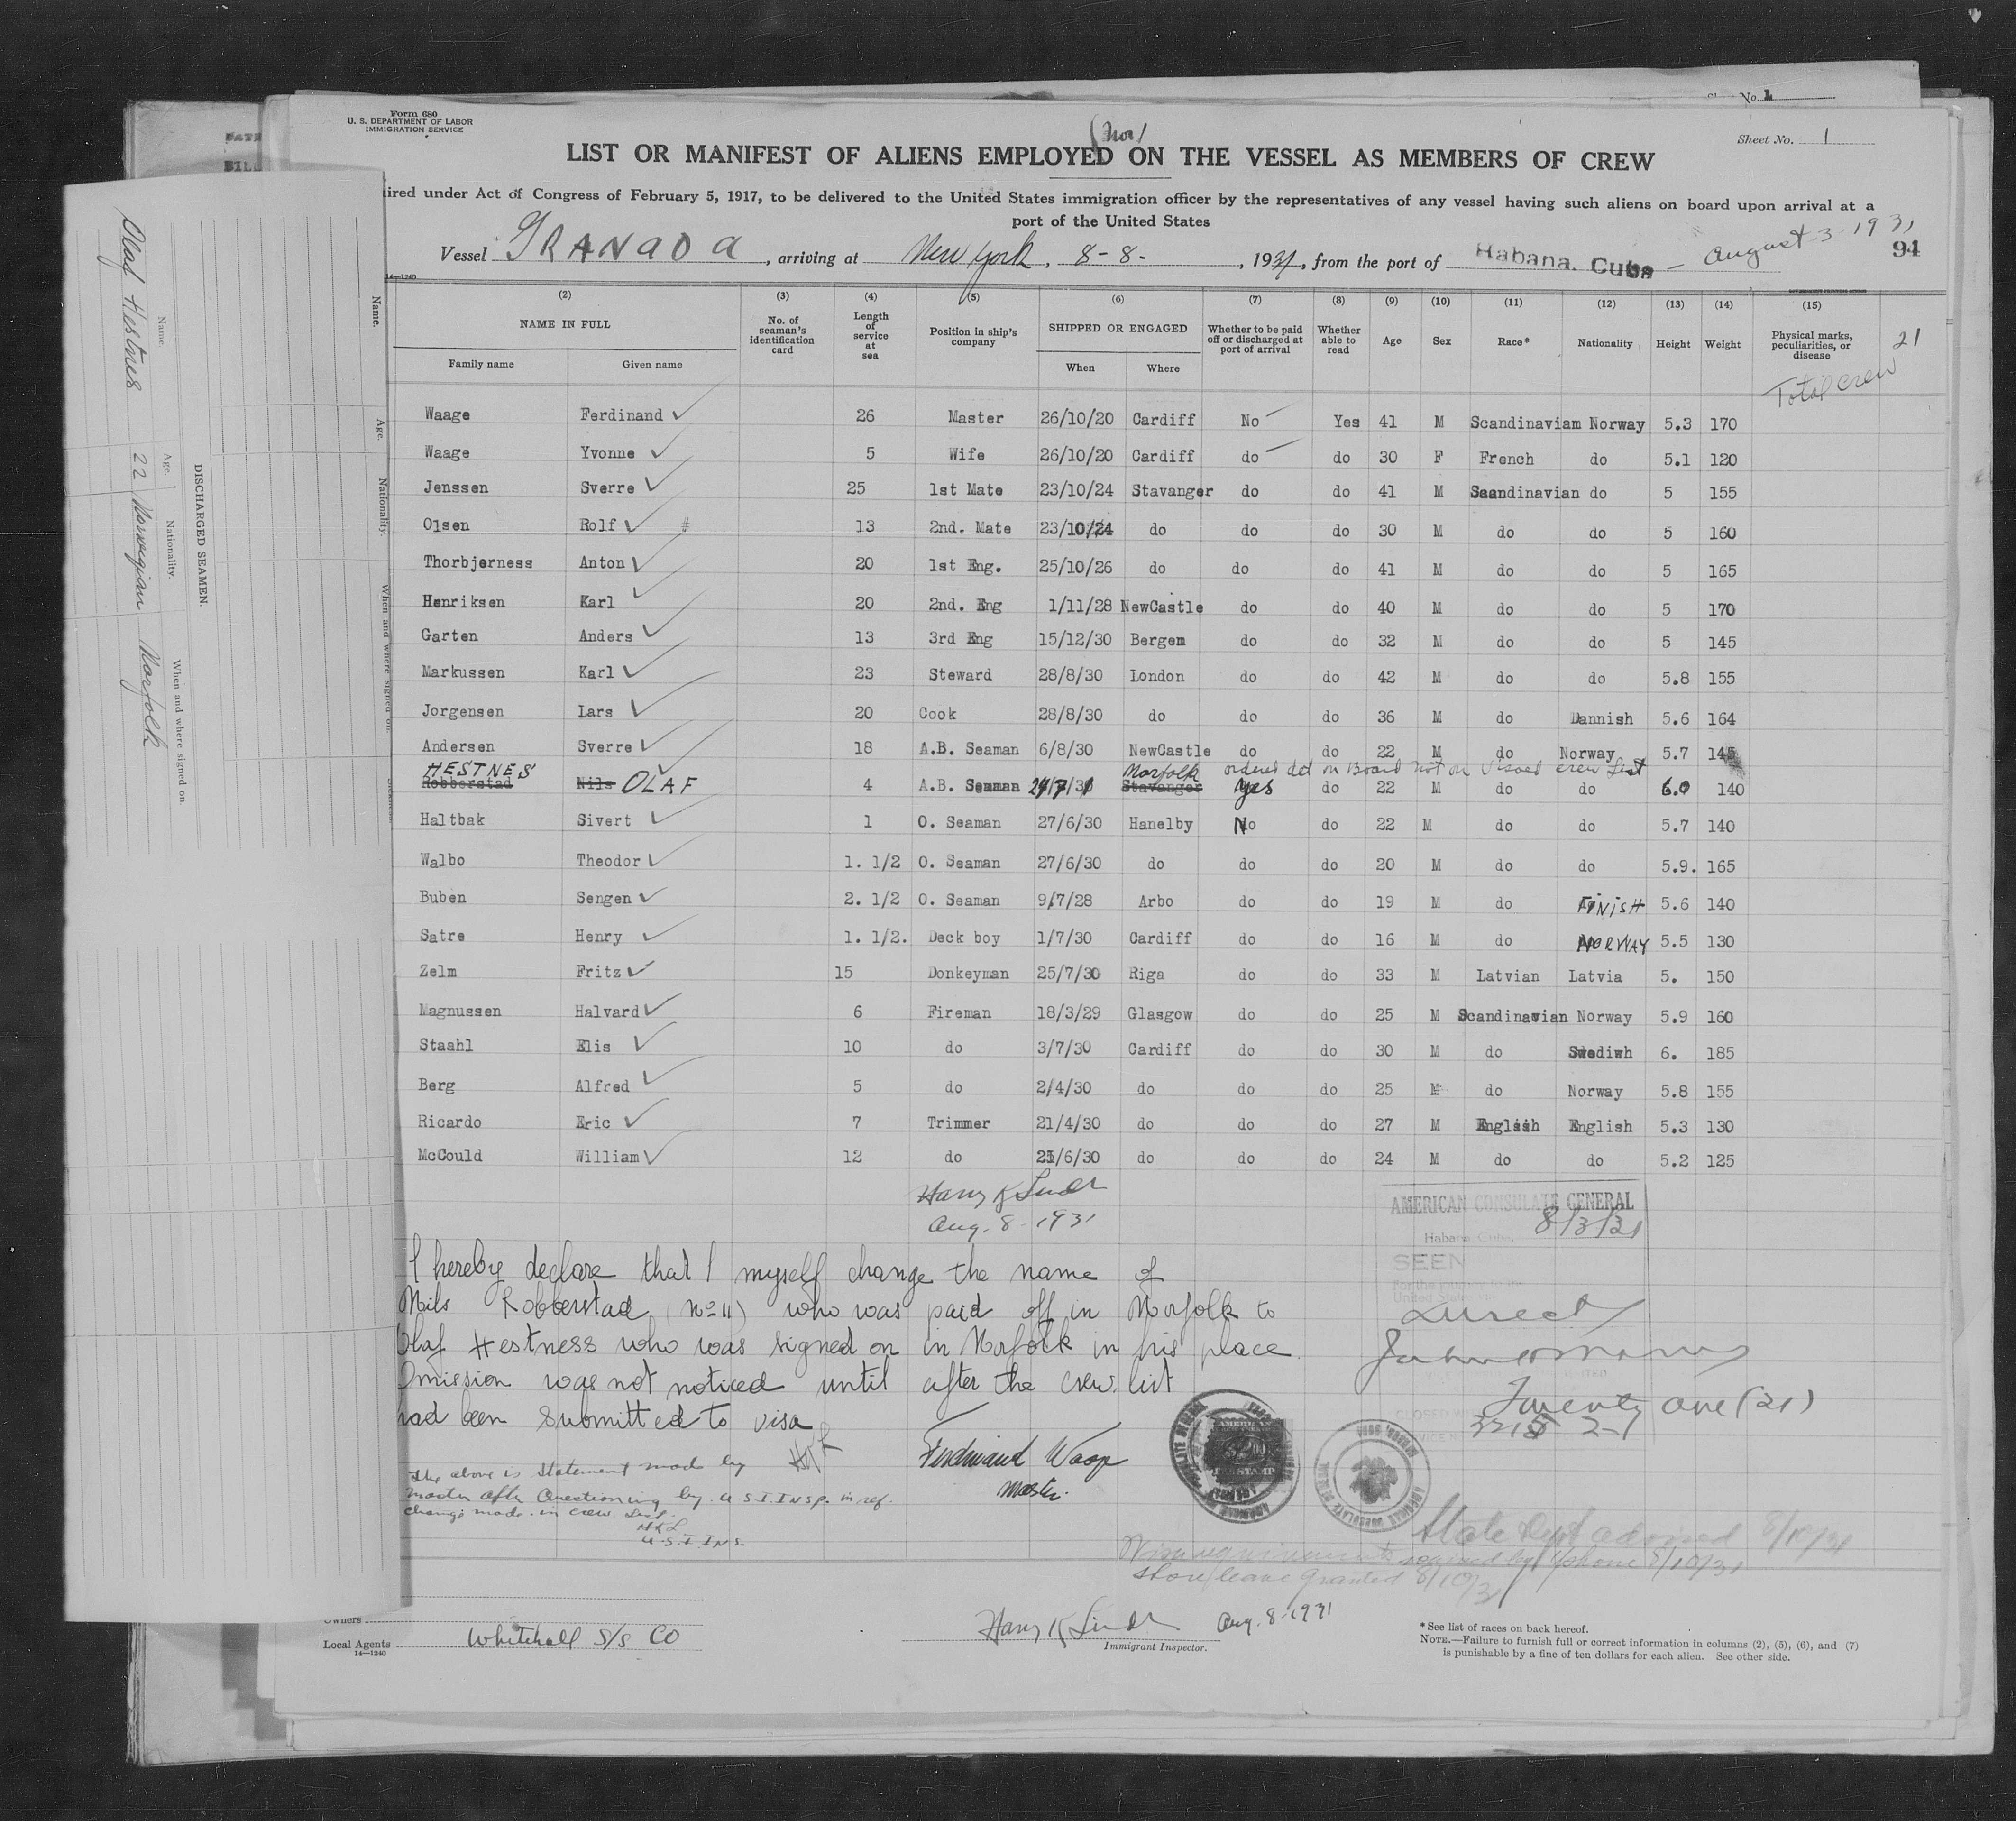 Sheet No. 1
Form 680
U. S. DEPARTMENT OF LABOR
IMMIGRATION SERVICE
(Nor)
Sheet No. 1
LIST OR MANIFEST OF ALIENS EMPLOYED ON THE VESSEL AS MEMBERS OF CREW
ired under Act of Congress of February 5, 1917, to be delivered to the United States immigration officer by the representatives of any vessel having such aliens on board upon arrival at a
port of the United States
Vessel GRANADA, arriving at New York, 8-8-, 1931, from the port of Habana, Cuba - August 3 1931
94
14—1240
(2) (3) (4) (5) (6) (7) (8) (9) (10) (11) (12) (13) (14) (15)
NAME IN FULL No. of seaman's identification card Length of service at sea Position in ship's company SHIPPED OR ENGAGED Whether to be paid off or discharged at port of arrival Whether able to read Age Sex Race* Nationality Height Weight Physical marks, peculiarities, or disease
Family name Given name When Where
21
Total crew
Waage Ferdinand 26 Master 26/10/20 Cardiff No Yes 41 M Scandinaviam Norway 5.3 170
Waage Yvonne 5 Wife 26/10/20 Cardiff do do 30 F French do 5.1 120
Jenssen Sverre 25 1st Mate 23/10/24 Stavanger do do 41 M Saandinavian do 5 155
Olsen Rolf # 13 2nd. Mate 23/10/24 do do do 30 M do do 5 160
Thorbjerness Anton 20 1st Eng. 25/10/26 do do do 41 M do do 5 165
Henriksen Karl 20 2nd. Eng 1/11/28 NewCastle do do 40 M do do 5 170
Garten Anders 13 3rd Eng 15/12/30 Bergem do do 32 M do do 5 145
Markussen Karl 23 Steward 28/8/30 London do do 42 M do do 5.8 155
Jorgensen Lars 20 Cook 28/8/30 do do do 36 M do Dannish 5.6 164
Andersen Sverre 18 A.B. Seaman 6/8/30 NewCastle do do 22 M do Norway 5.7 145
HESTNES Norfolk ordered det on Board not on Visaed crew List
Robberstad Nils OLAF 4 A.B. Seaman 24/7/31 Stavanger Yes do 22 M do do 6.0 140
Haltbak Sivert 1 O. Seaman 27/6/30 Hanelby No do 22 M do do 5.7 140
Walbo Theodor 1. 1/2 O. Seaman 27/6/30 do do do 20 M do do 5.9. 165
Buben Sengen 2. 1/2 O. Seaman 9/7/28 Arbo do do 19 M do FINISH 5.6 140
Satre Henry 1. 1/2. Deck boy 1/7/30 Cardiff do do 16 M do NORWAY 5.5 130
Zelm Fritz 15 Donkeyman 25/7/30 Riga do do 33 M Latvian Latvia 5. 150
Magnussen Halvard 6 Fireman 18/3/29 Glasgow do do 25 M Scandinavian Norway 5.9 160
Staahl Elis 10 do 3/7/30 Cardiff do do 30 M do Swediwh 6. 185
Berg Alfred 5 do 2/4/30 do do do 25 M do Norway 5.8 155
Ricardo Eric 7 Trimmer 21/4/30 do do do 27 M English English 5.3 130
McCould William 12 do 21/6/30 do do do 24 M do do 5.2 125
Harry K Lindh
Aug. 8 - 1931
AMERICAN CONSULATE GENERAL
8/3/31
Habana, Cuba,
SEEN
I hereby declare that I myself change the name of
Nils Robberstad (No 11) who was paid off in Norfolk to
Olaf Hestness who was signed on in Norfolk in his place.
Omission was not noticed until after the crew list
had been submitted to visa
Direct
Twenty one (21)
Ferdinand Waage
Master.
The above is Statement made by
master after Questioning by U.S.I.Insp. in ref.
change made in crew List.
HKL
U.S.I.INS.
State Dept advised 8/10/31
Visa requirements waived by phone 8/10/31
Shore leave granted 8/10/31
Owners
Local Agents Whitehall S/S Co
14—1240
Harry K Lindh Aug. 8-1931
Immigrant Inspector.
*See list of races on back hereof.
NOTE.—Failure to furnish full or correct information in columns (2), (5), (6), and (7)
is punishable by a fine of ten dollars for each alien. See other side.
DISCHARGED SEAMEN.
Name. Age. Nationality. When and where signed on.
Olaf Hestnes 22 Norwegian Norfolk
Name. Age. Nationality. When and where signed on.